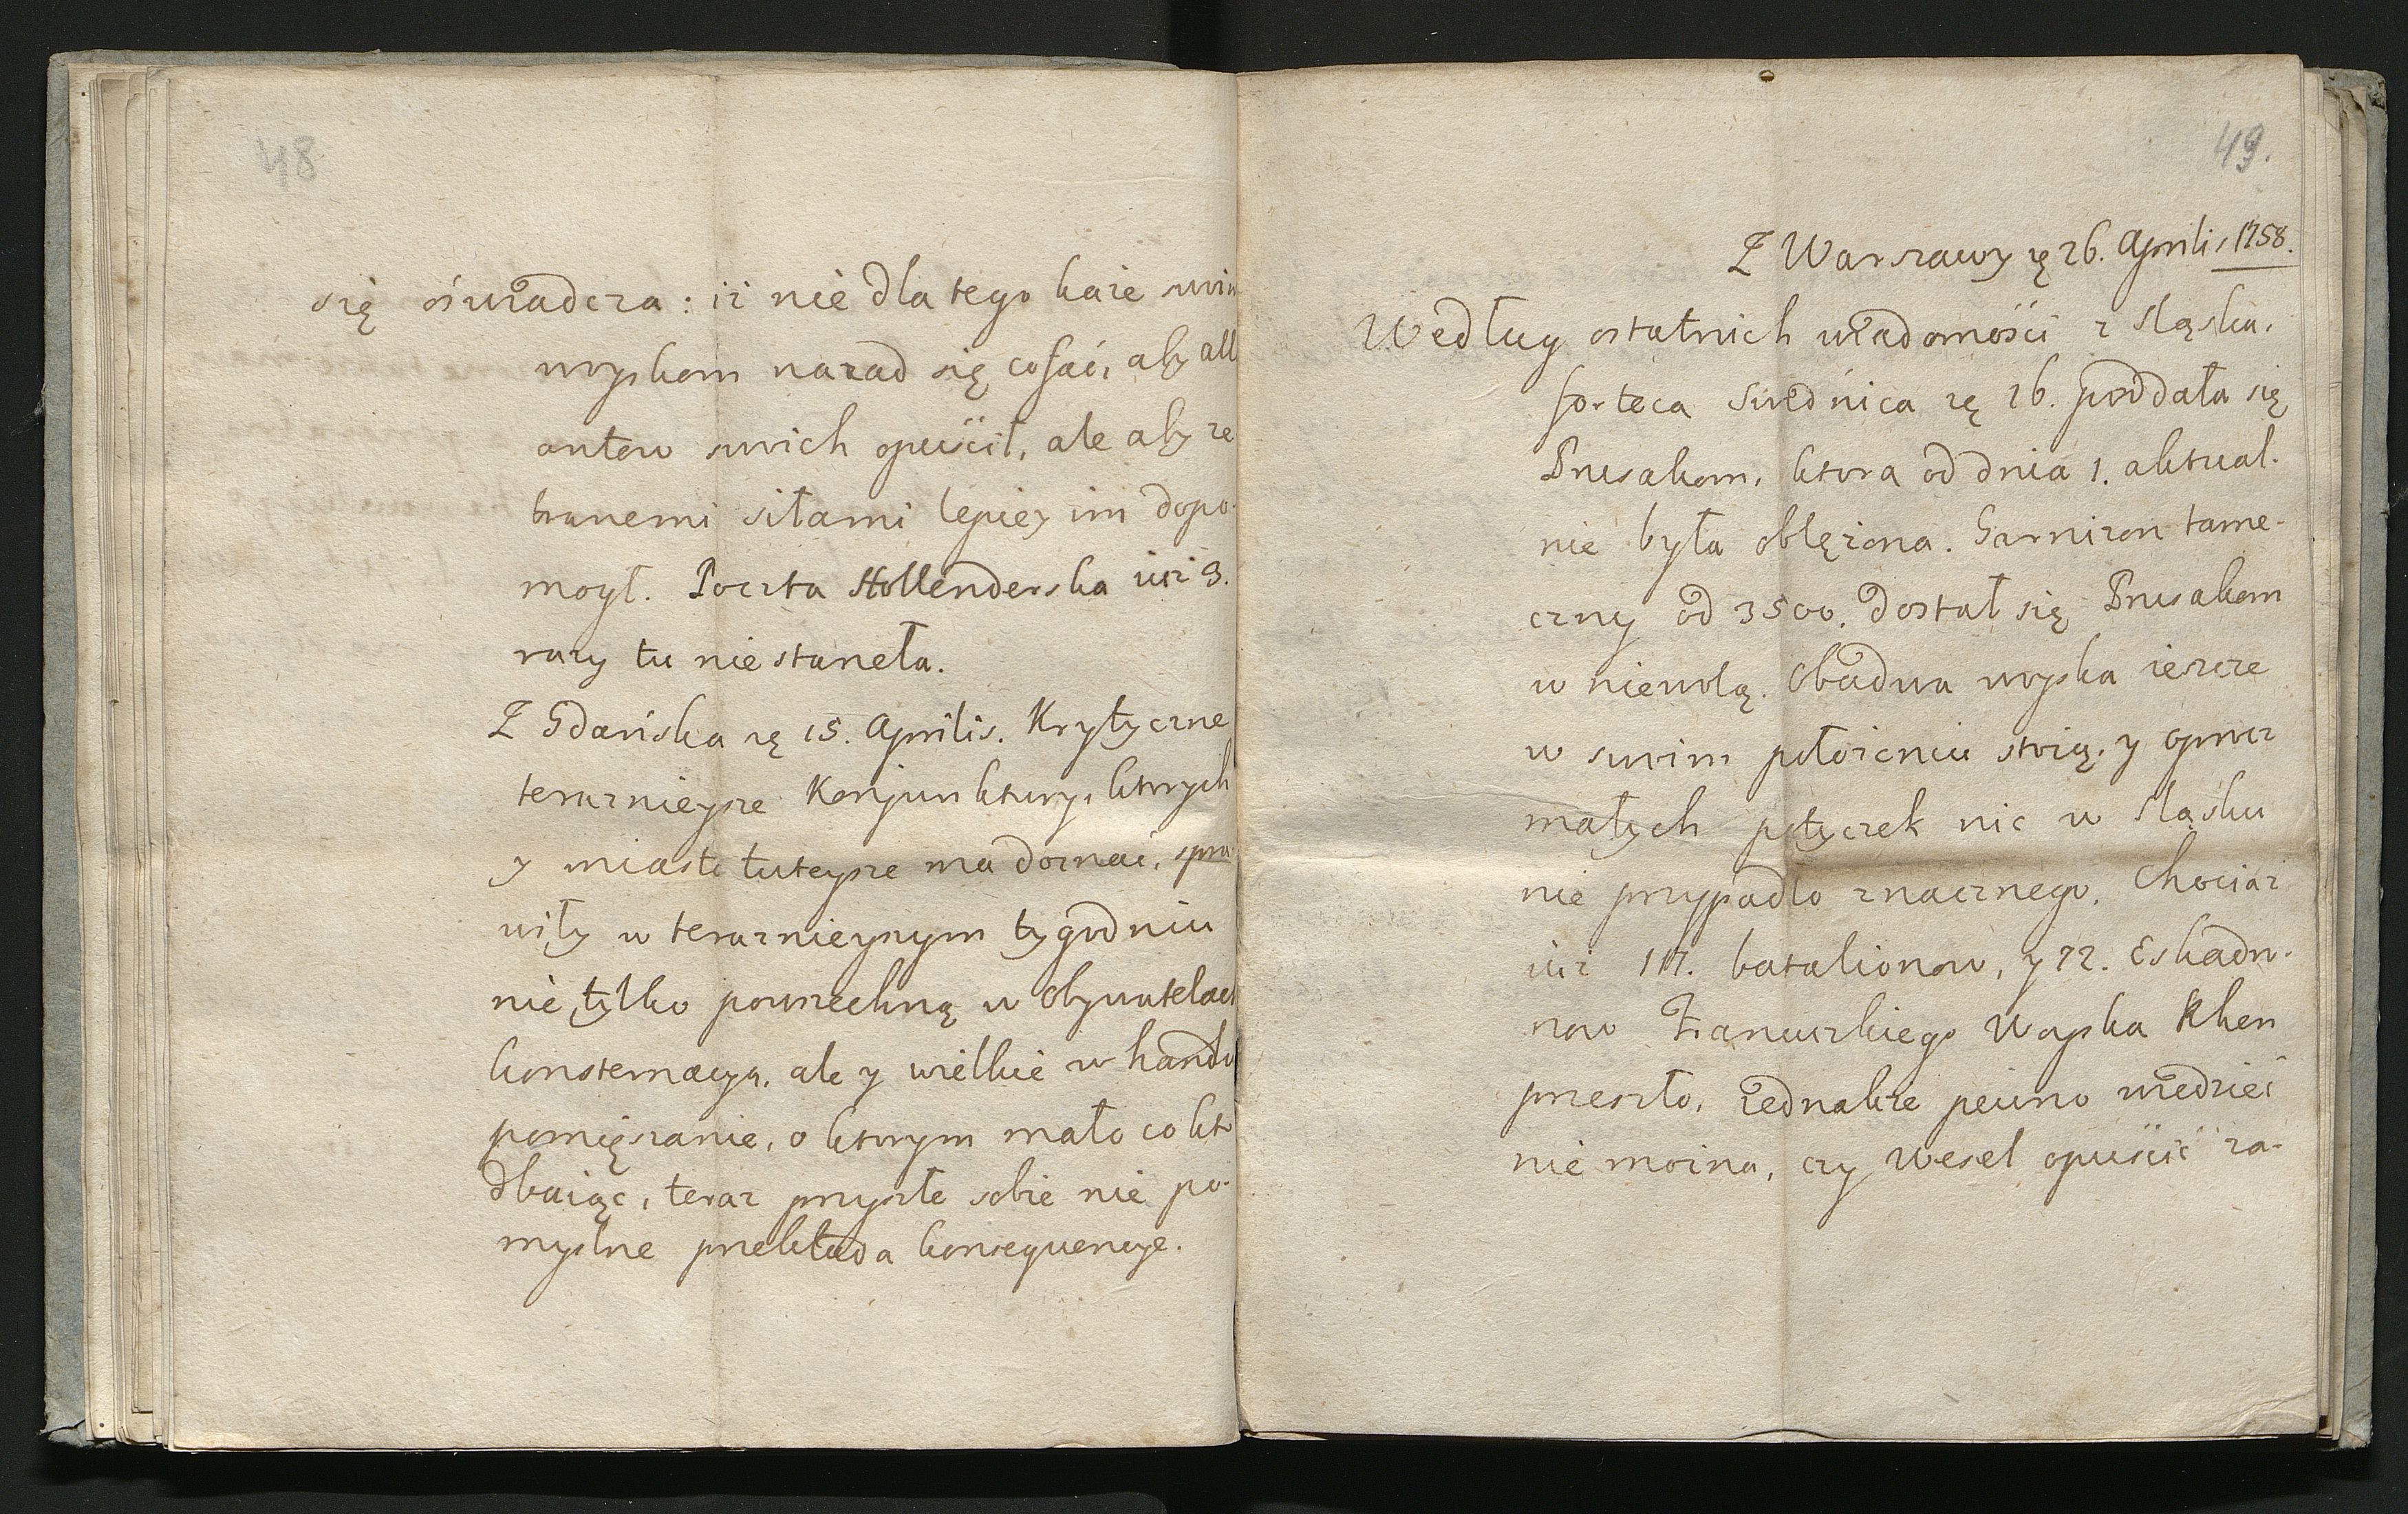 48
się oświadcza: iż nie dla tego każe swim
woyskom nazad się cofać, aby all
antow swich opuścił, ale aby ze
branemi siłami lepiey im dopo-
mogł. Poczta Hollenderska iuż 3.
razy tu nie staneła.
Z Gdańska zę 15. Aprilis. Krytyczne
teraznieysze Konjunktury, ktorych
y miasto tuteysze ma doznać, spra-
wiły w teraznieyszym tygodniu
nie tylko powszechną w Obywatelach
konsternacyą, ale y wielkie w handlu
pomięszanie, o ktorym mało co kto
dbaiąc, teraz przyszłe sobie nie po-
myślne przekłada konsequencye.
49.
Z Warszawy zę 26. Aprilis 1758.
Według ostatnich wiadomości z Sląska,
forteca Swidnica zę 16. poddała się
Prusakom, ktora od dnia 1. aktual-
nie była oblężona. Garnizon tame-
czny od 3500. dostał się Prusakom
w niewolą. Obadwa woyska ieszcze
w swim położeniu stoią, y oprocz
małych potyczek nic w Sląsku
nie przypadło znacznego. Chociaż
iuż 117. batalionow, y 72. Eskadro-
now Francuzkiego Woyska Rhen
przeszło, iednakże pewno wiedzieć
nie można, czy Wesel opuścić za-